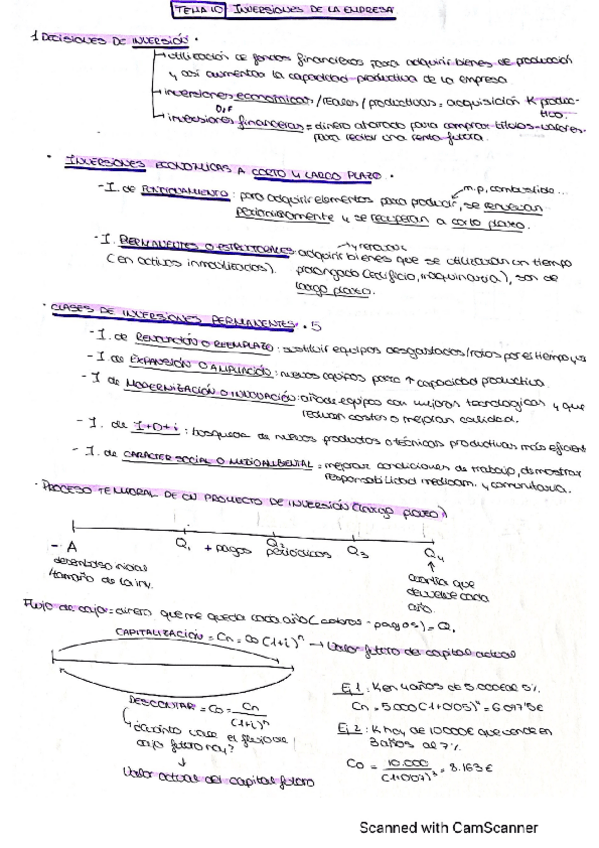 TEMA 10 INVERSIONES DE LA EMPRESA
1 DECISIONES DE INVERSIÓN.
utilización de fondos financieros para adquirir bienes de producción
y así aumentar la capacidad productiva de la empresa
inversiones económicas/reales/productivas = adquisición K produc-
tivo.
DIF
inversiones financieras = dinero ahorrado para comprar títulos-valores
para recibir una renta futura.
· INVERSIONES ECONÓMICAS A CORTO Y LARGO PLAZO.
m.p, combustible...
- I. de FUNCIONAMIENTO: para adquirir elementos para producir, se renuevan
periódicamente y se recuperan a corto plazo.
- I. PERMANENTES O ESTRUCTURALES: adquirir bienes que se utilizarán un tiempo
(en activos inmovilizados). prolongado (edificio, maquinaria), son de
largo plazo.
· CLASES DE INVERSIONES PERMANENTES. 5
- I. de RENOVACIÓN O REEMPLAZO: sustituir equipos desgastados/rotos por el tiempo
- I. de EXPANSIÓN O AMPLIACIÓN: nuevos equipos para ↑ capacidad productiva.
- I de MODERNIZACIÓN O INNOVACIÓN: añade equipos con mejoras tecnologicas y que
reducan costes o mejoran calidad.
- I. de I+D+i: busqueda de nuevos productos o técnicas productivas más eficient
- I. de CARÁCTER SOCIAL O MEDIOAMBIENTAL = mejorar condiciones de trabajo, demostrar
responsabilidad medioam. y comunitaria.
· PROCESO TEMPORAL DE UN PROYECTO DE INVERSIÓN (largo plazo)
- A Q1 + pagos Q2 periódicos Q3 Q4
desembolso inicial
tamaño de la inv.
cuantía que
devuelve cada
año.
Flujo de caja = dinero que me queda cada año (cobros - pagos) = Q1
CAPITALIZACIÓN = Cn = Co (1+i)^n → Valor futuro del capital actual
DESCONTAR = Co = Cn / (1+i)^n
¿cuánto vale el flujo de
caja futuro hoy?
Valor actual del capital futuro
Ej 1: K en 4 años de 5.000€ al 5%
Cn = 5000 (1+0'05)^4 = 6077'5€
Ej 2: K hoy de 10000€ que vence en
3 años al 7%
Co = 10.000 / (1+0'07)^3 = 8.163€
Scanned with CamScanner